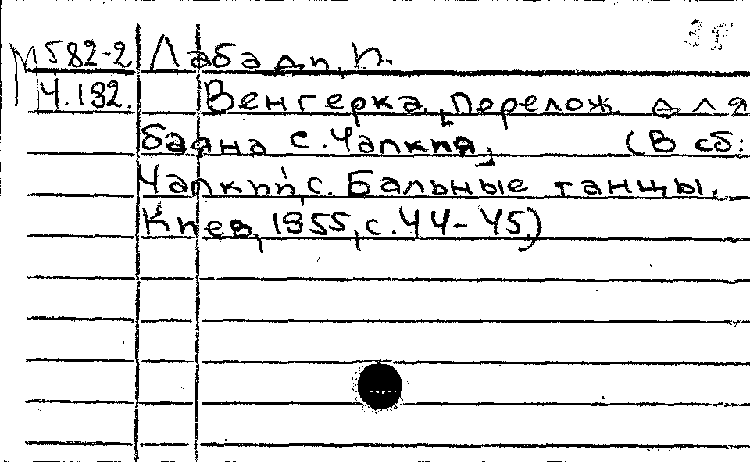 М582-2 Лабадп, П.
Ч.192. Венгерка, перелож для
баяна С. Чапкия, (В сб:
Чапкий, С. Бальные танцы.
Киев, 1955, с. 44-45.)